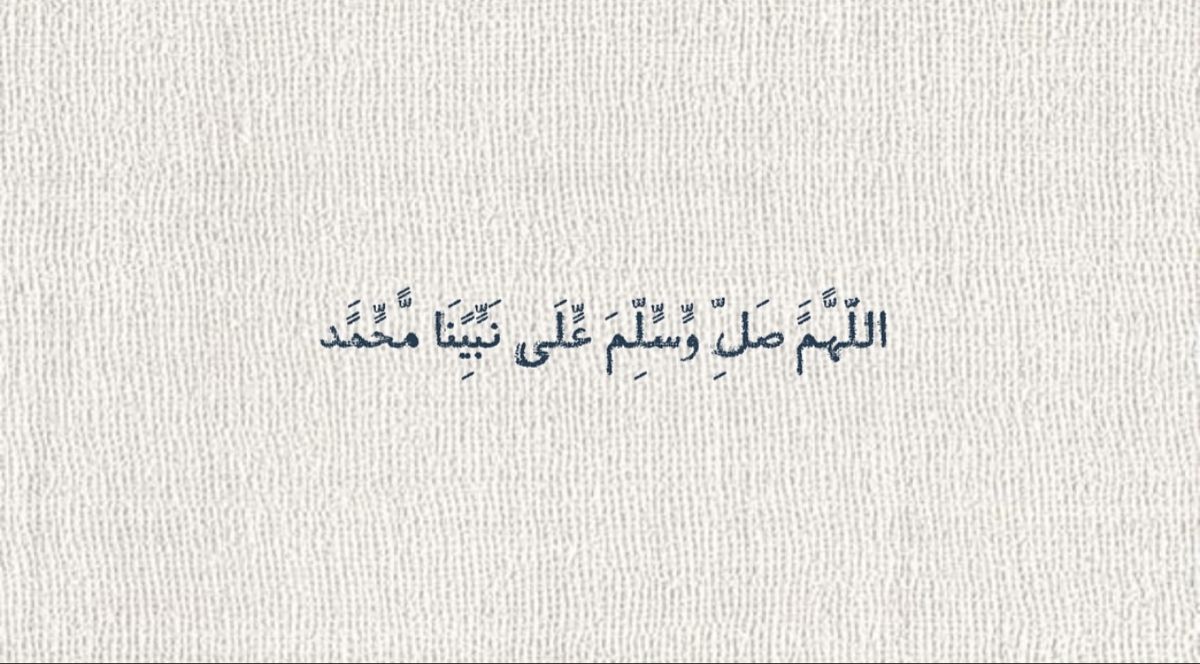 اللَّهُمَّ صَلِّ وَسَلِّمَ عَلَى نَبِيِّنَا مُّحَمَّد